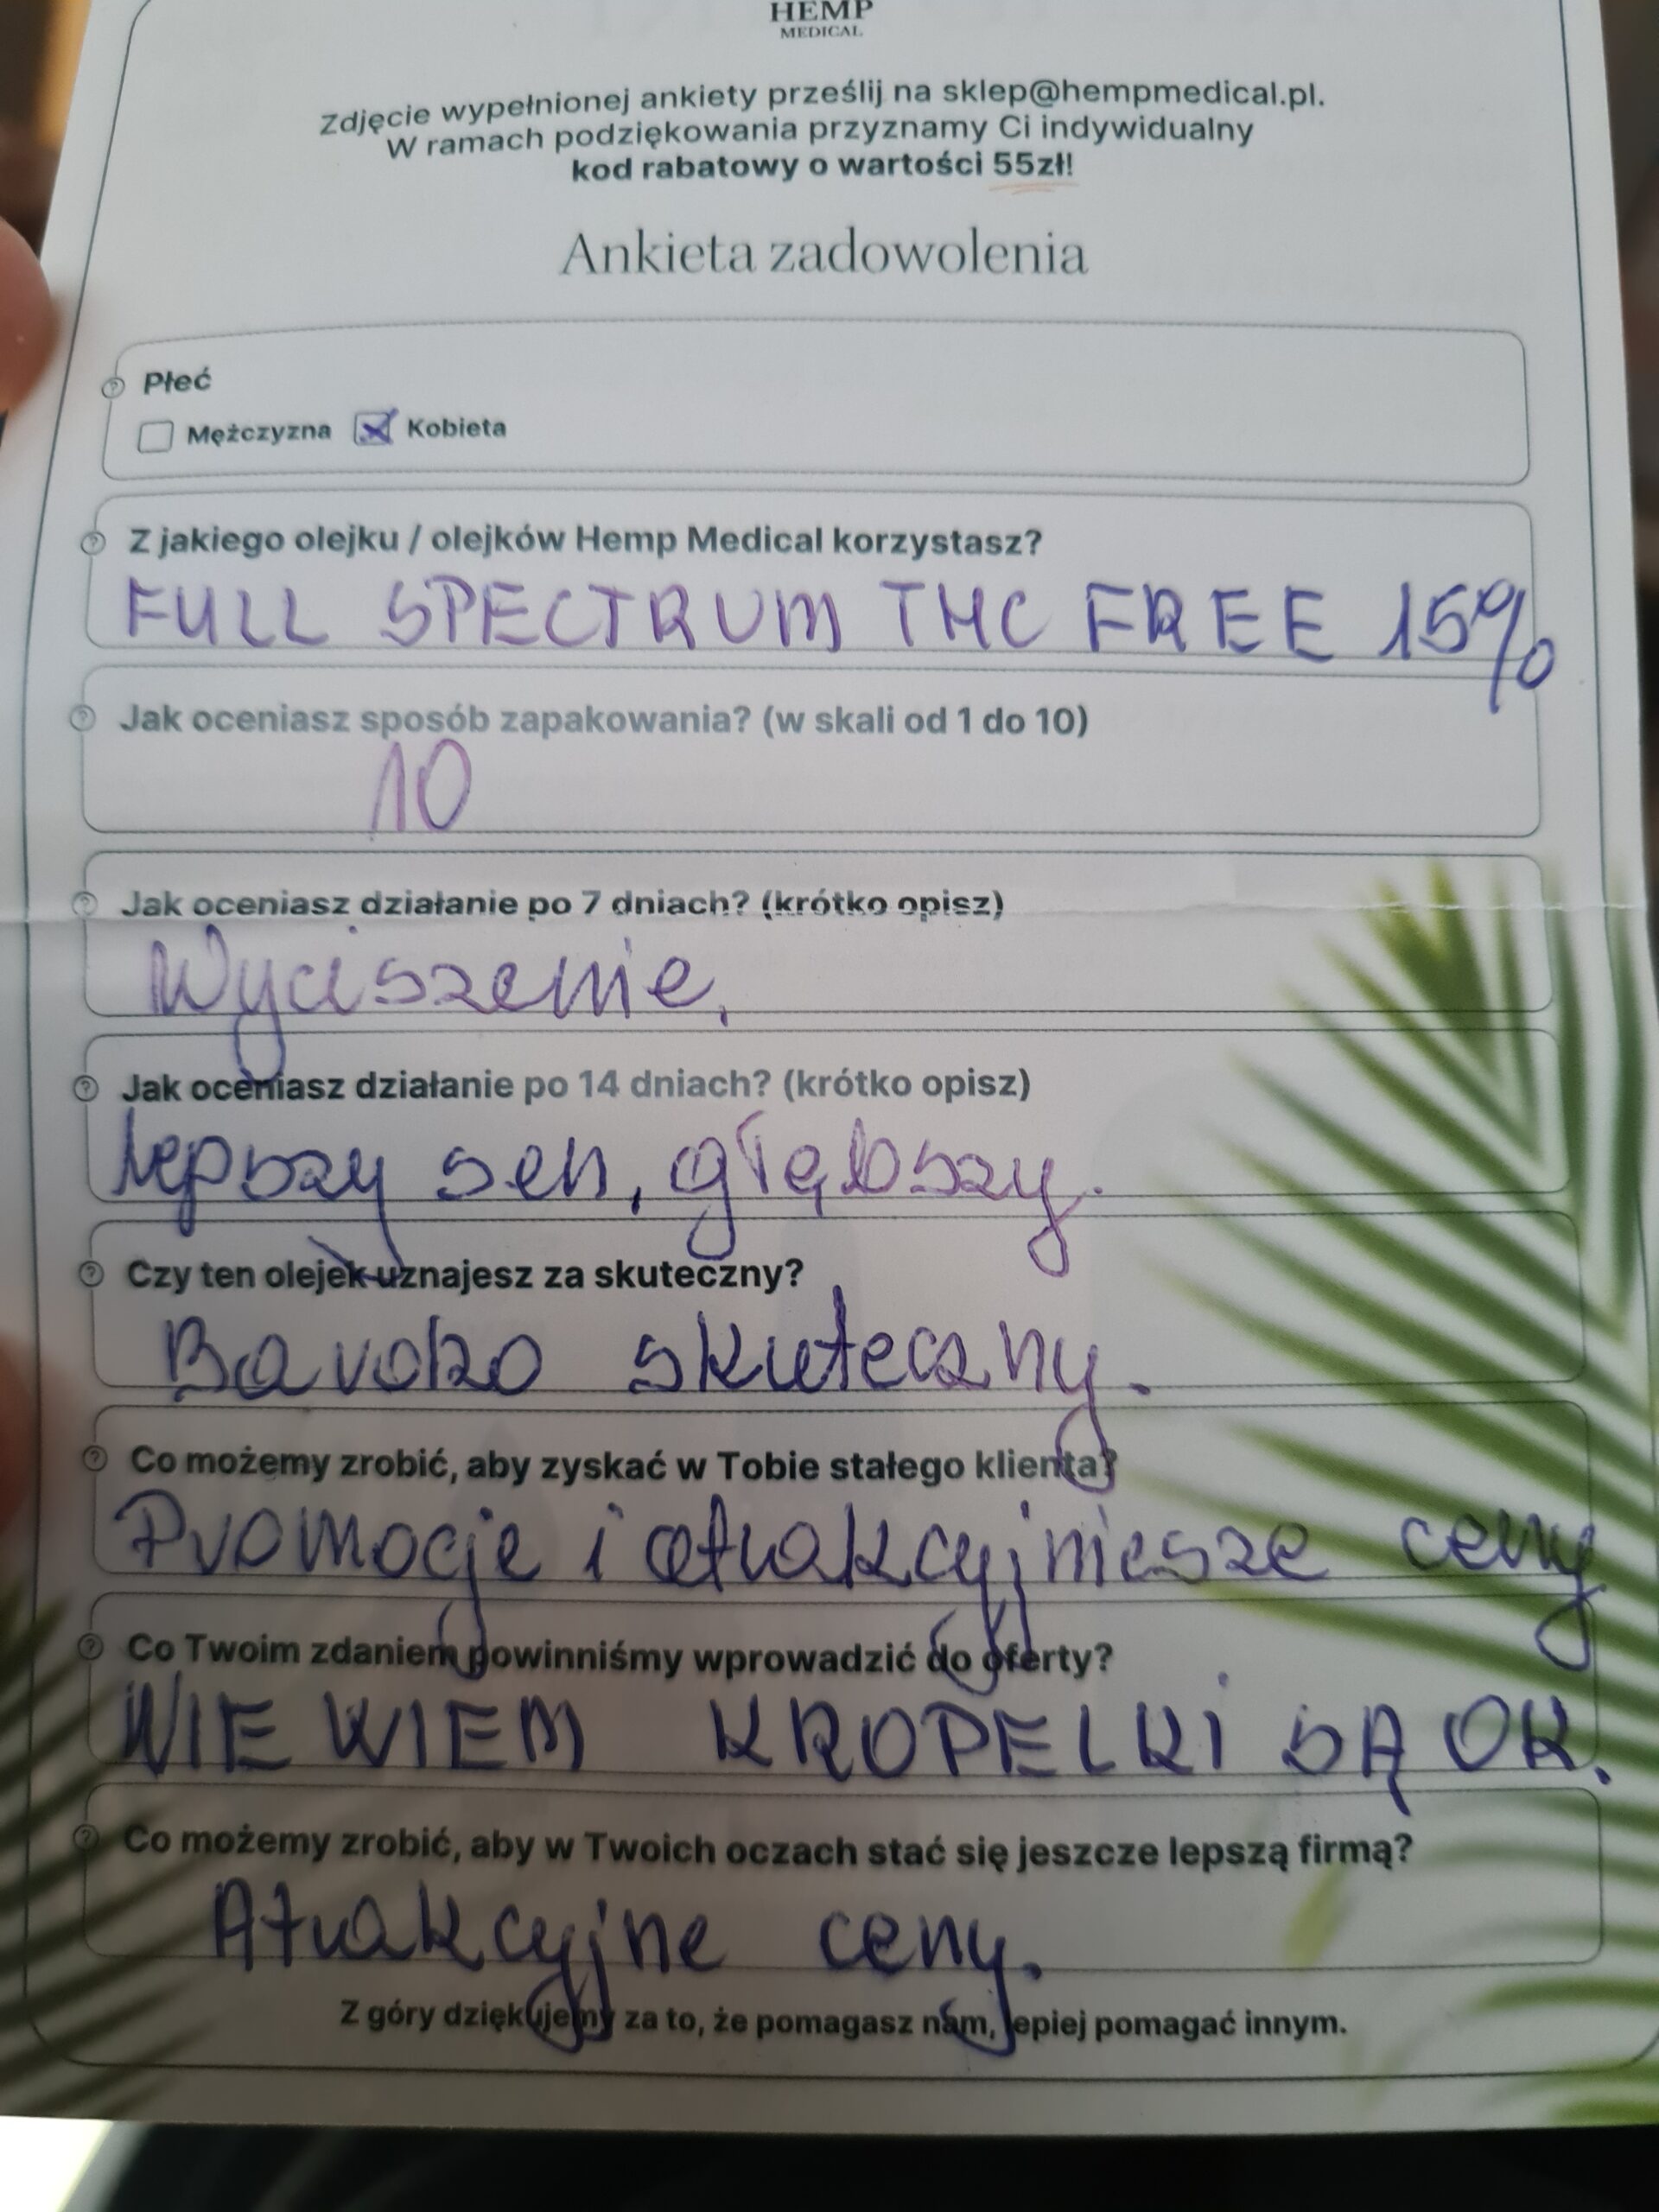 HEMP
MEDICAL
Zdjęcie wypełnionej ankiety prześlij na sklep@hempmedical.pl.
W ramach podziękowania przyznamy Ci indywidualny
kod rabatowy o wartości 55zł!
Ankieta zadowolenia
Płeć
Mężczyzna Kobieta
Z jakiego olejku / olejków Hemp Medical korzystasz?
FULL SPECTRUM THC FREE 15%
Jak oceniasz sposób zapakowania? (w skali od 1 do 10)
10
Jak oceniasz działanie po 7 dniach? (krótko opisz)
Wyciszenie,
Jak oceniasz działanie po 14 dniach? (krótko opisz)
lepszy sen, głębszy.
Czy ten olejek uznajesz za skuteczny?
Bardzo skuteczny.
Co możemy zrobić, aby zyskać w Tobie stałego klienta?
Promocje i atrakcyjniesze ceny
Co Twoim zdaniem powinniśmy wprowadzić do oferty?
NIE WIEM KROPELKI SĄ OK.
Co możemy zrobić, aby w Twoich oczach stać się jeszcze lepszą firmą?
Atrakcyjne ceny.
Z góry dziękujemy za to, że pomagasz nam, lepiej pomagać innym.